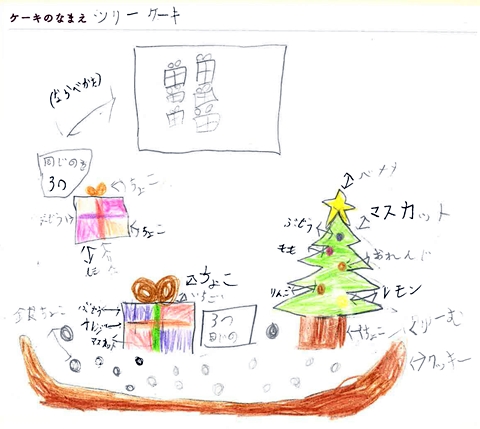 ケーキのなまえ ツリーケーキ
(ならべかた)
同じのを
3つ
ちょこ
ぶどう
ちょこ
もも
バナナ
マスカット
ぶどう
もも
おれんじ
りんご
レモン
ちょこ
くりーむ
クッキー
ちょこ
いちご
ぶどう
オレンジ
マスカット
3つ
同じの
ちょこ